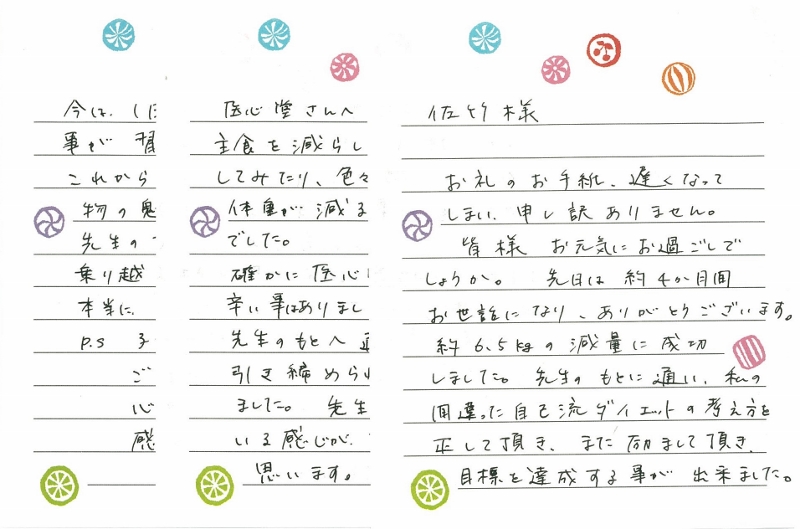 佐竹様
お礼のお手紙、遅くなって
しまい、申し訳ありません。
皆様 お元気にお過ごしで
しょうか。 先日は 約4か月間
お世話になり、ありがとうございます。
約6.5kgの減量に成功
しました。先生のもとに通い、私の
間違った自己流ダイエットの考え方を
正して頂き、また励まして頂き、
目標を達成する事が 出来ました。
医心堂さんへ
主食を減らし
してみたり、色々
体重が減る
でした。
確かに医心
辛い事はありまし
先生のもとへ
引き締めら
ました。 先生
いる感じが、
思います。
今は、1日
事が 習
これから
物の
先生の
乗り越
本当に、
P.S 子
ご
心
感